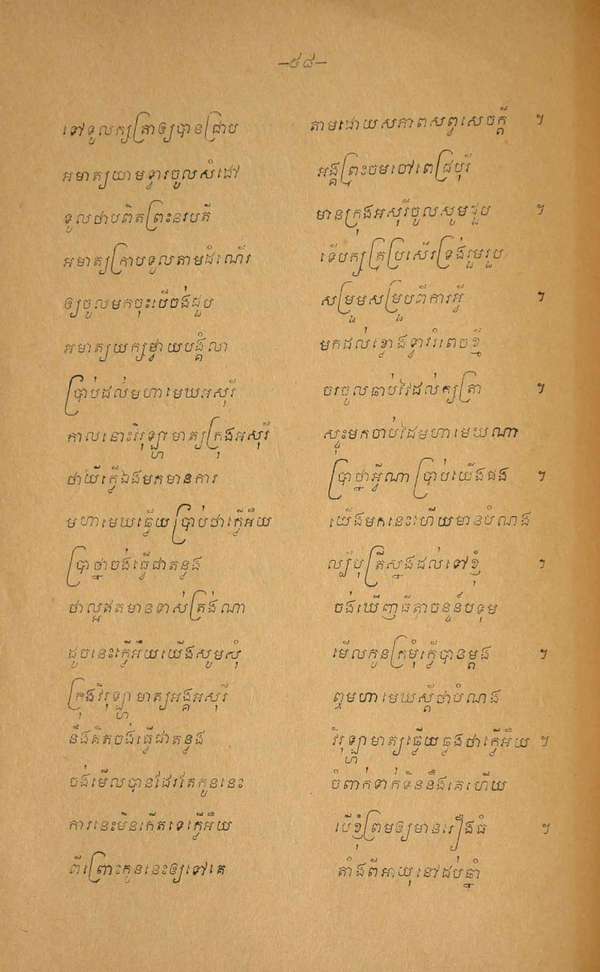 –៥៨–
ទៅទូលក្សត្រាឲ្យបានជ្រាប តាមដោយសភាពសព្វសេចក្ដី ។
អមាត្យយាមទ្វារចូលសំដៅ អង្គព្រះចមចៅពេជ្របុរី
ទូលថាបពិតព្រះនរបតី មានក្រុងអសុរីចូលសូមជួប ។
អមាត្យក្រាបទូលតាមដំណើរ ទើបក្សត្រប្រសើរទ្រង់រួមរួប
ឲ្យចូលមកចុះបើចង់ជួប សម្រួមសម្រួបពីការអ្វី ។
អមាត្យយក្សថ្វាយបង្គំលា មកដល់ខ្លោងទ្វាររំពេចខ្មី
ប្រាប់ដល់មហាមេឃអសុរី ចរចូលឆាប់វៃដល់ក្សត្រា ។
កាលនោះវិរុឡ្ហាមាត្យក្រុងអសុរី ស្ទុះមកចាប់ដៃមហាមេឃណា
ថាយីក្លើឯងមកមានការ ប្រាថ្នាអ្វីណា ប្រាប់យើងផង ។
មហាមេឃឆ្លើយប្រាប់ថាក្លើអើយ យើងមកនេះហើយមានបំណង
ប្រាថ្នាចង់ធ្វើជាតន្លង ល្បីបុត្រីស្នងដល់ទៅខ្ញុំ ។
ថាល្អឥតមានទាស់ត្រង់ណា ចង់ឃើញធីតាចន្ទន៍បទុម
ដូចនេះក្លើអើយយើងសូមសុំ មើលកូនក្រមុំក្លើបានម្ដង ។
ក្រុងវិរុឡ្ហាមាត្យអង្គអសុរី ឮមហាមេឃស្ដីថាបំណង
នឹងគិតចង់ធ្វើជាតន្លង វិរុឡ្ហាមាត្យឆ្លើយឆ្លងថាក្លើអើយ ។
ចង់មើលបានដែរតែកូននេះ ចំពាក់ទាក់ទិននឹងគេហើយ
ការនេះមិនកើតទេក្លើអើយ បើខ្ញុំព្រមឲ្យមានរឿងធំ ។
ពីព្រោះកូននេះឲ្យទៅគេ តាំងពីអាយុនៅដប់ឆ្នាំ